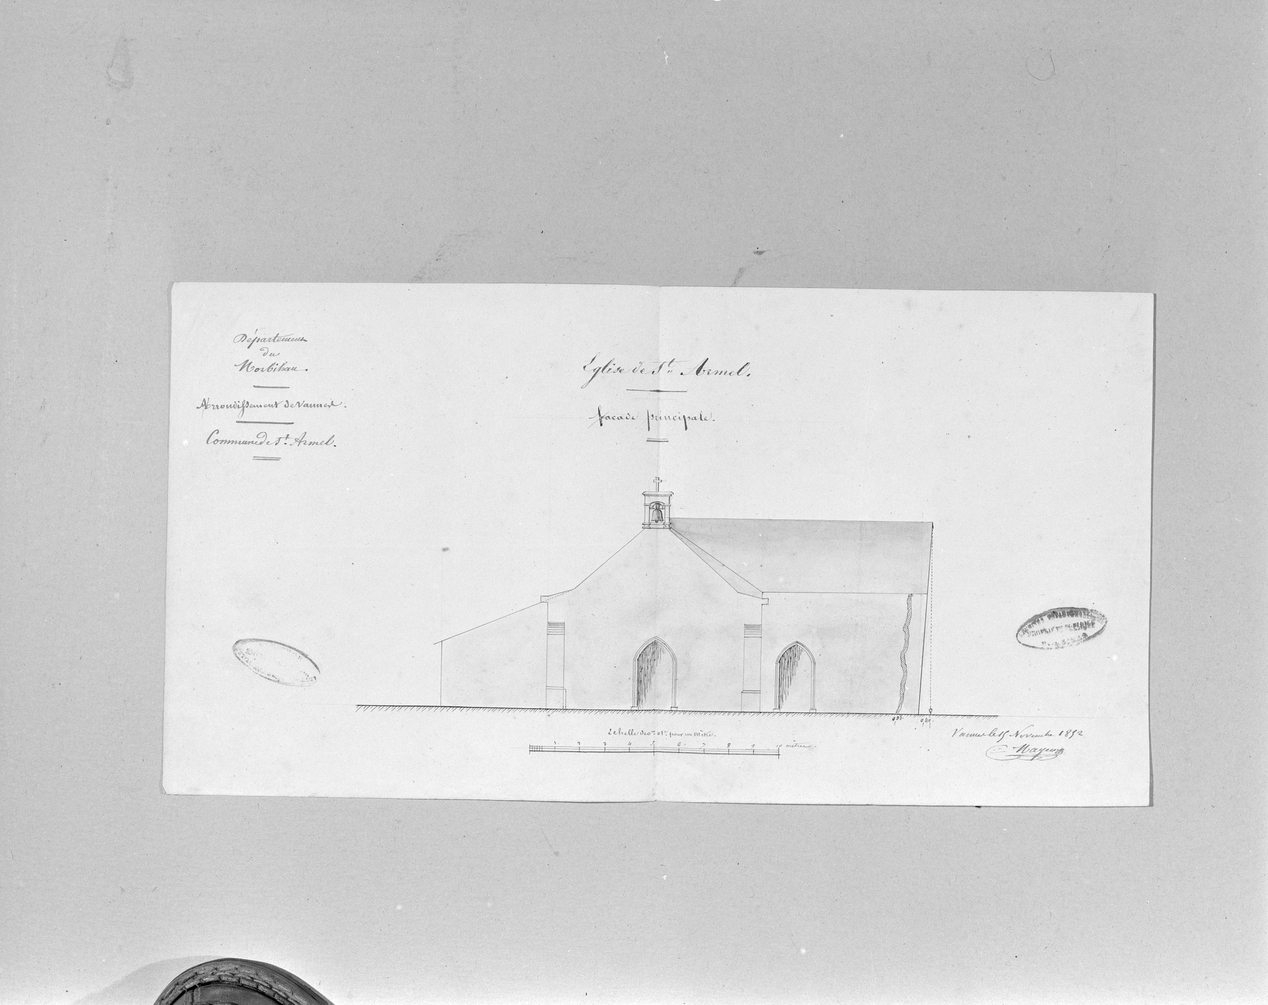 Département
du
Morbihan.
Arrondissement de Vannes.
Commune de St. Armel.
Eglise de St. Armel.
façade principale.
Echelle de 0m 01c pour un Mètre.
1 2 3 4 5 6 7 8 9 10 mètres
Vannes le 15 Novembre 1852